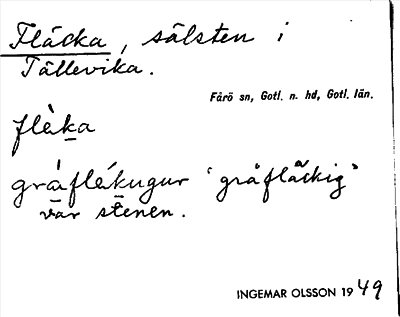 Fläcka, sälsten i
Tällevika.
Fårö sn, Gotl. n. hd, Gotl. län.
flèka
gráflékugur "gråfläckig"
var stenen.
INGEMAR OLSSON 1949